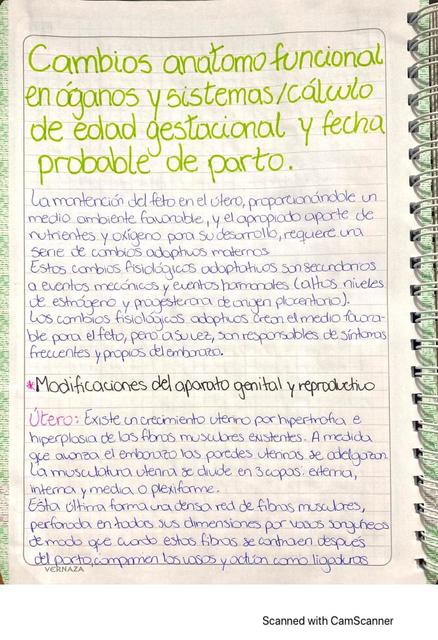 Cambios anatomo funcional
en óganos y sistemas/cálculo
de edad gestacional y fecha
probable de parto.
La mantención del feto en el útero, proporcionándole un
medio ambiente favorable, y el apropiado aporte de
nutrientes y oxígeno para su desarrollo, requiere una
serie de cambios adaptivos maternos
Estos cambios fisiológicos adaptativos son secundarios
a eventos mecánicos y eventos hormonales (altos niveles
de estrógeno y progesterona de origen placentario).
Los cambios fisiológicos adaptivos crean el medio favora-
ble para el feto, pero a su vez, son responsables de síntomas
frecuentes y propios del embarazo.
*Modificaciones del aparato genital y reproductivo
Útero: Existe un crecimiento uterino por hipertrofia e
hiperplasia de las fibras musculares existentes. A medida
que avanza el embarazo las paredes uterinas se adelgazan
La musculatura uterina se divide en 3 capas: externa,
interna y media o plexiforme.
Esta última forma una densa red de fibras musculares,
perforada en todas sus dimensiones por vasos sanguíneos
de modo que cuando estas fibras se contraen después
del parto, comprimen los vasos y actúan como ligaduras
VERNAZA
Scanned with CamScanner